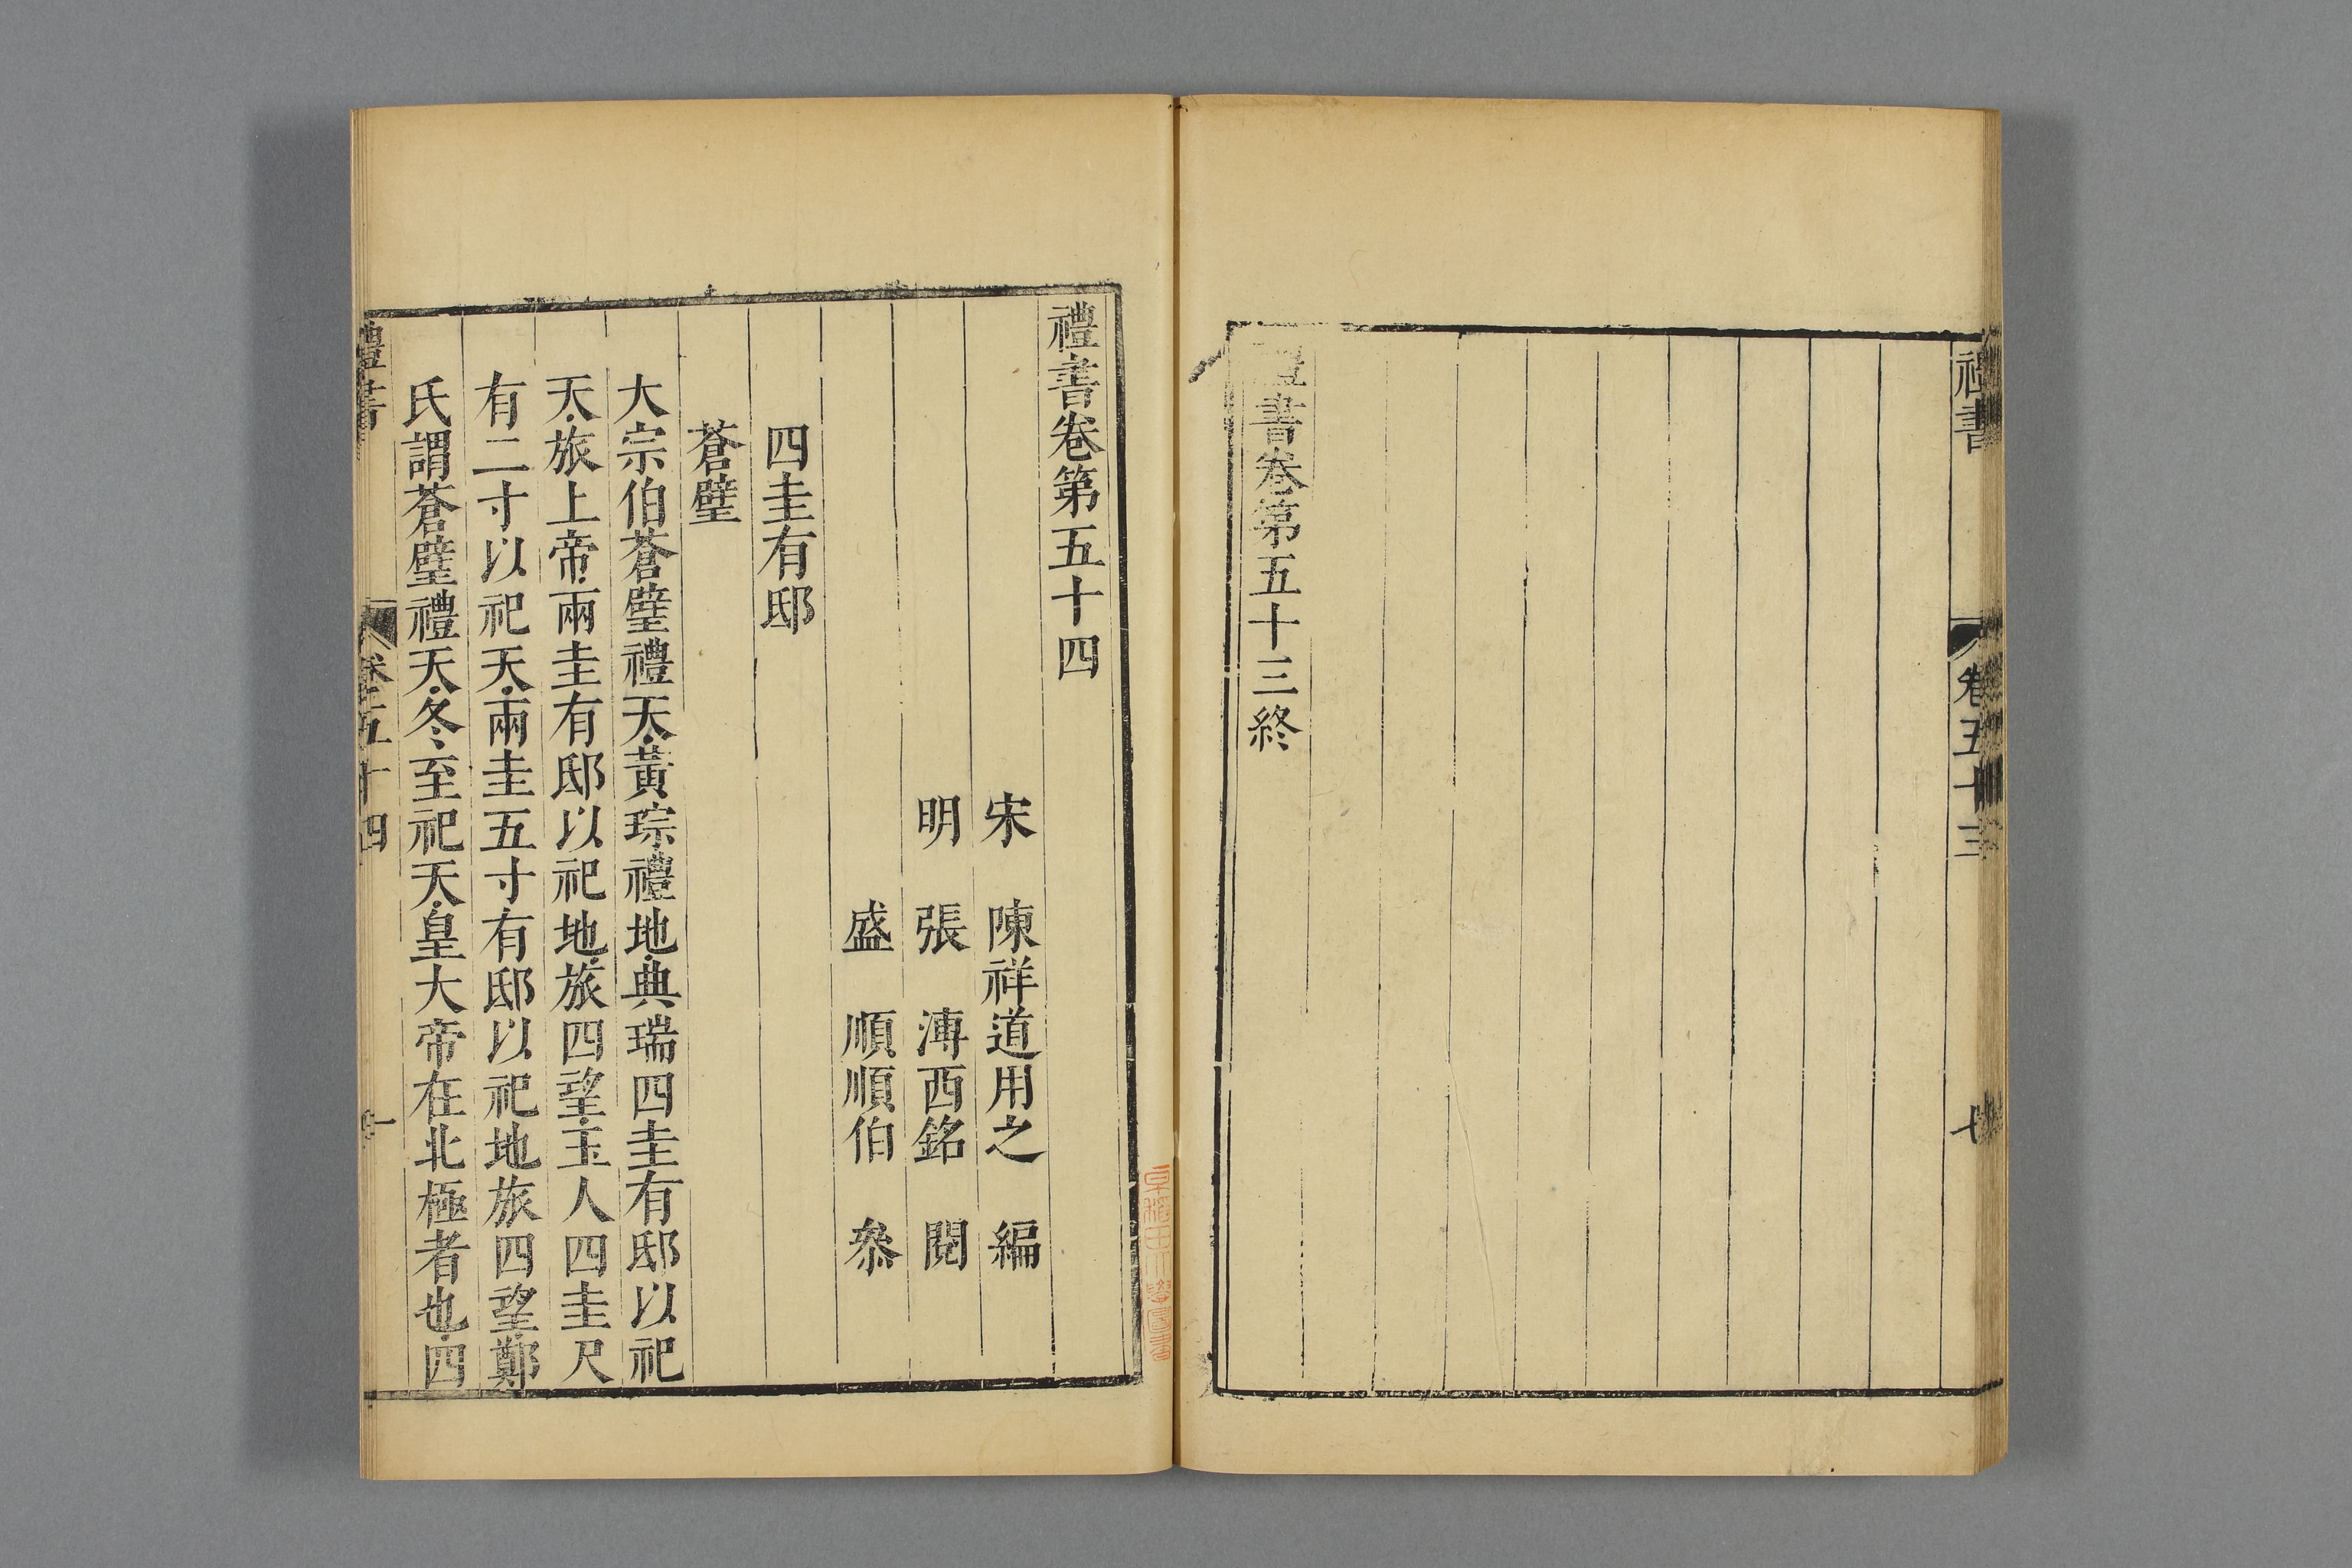 禮書
卷五十三
七
禮書卷第五十三終
禮書卷第五十四
宋　陳祥道用之　編
明　張　溥西銘　閱
盛　順順伯　叅
四圭有邸
蒼璧
大宗伯蒼璧禮天黃琮禮地典瑞四圭有邸以祀
天旅上帝兩圭有邸以祀地旅四望玉人四圭尺
有二寸以祀天兩圭五寸有邸以祀地旅四望鄭
氏謂蒼璧禮天冬至祀天皇大帝在北極者也四
禮書
卷五十四
一